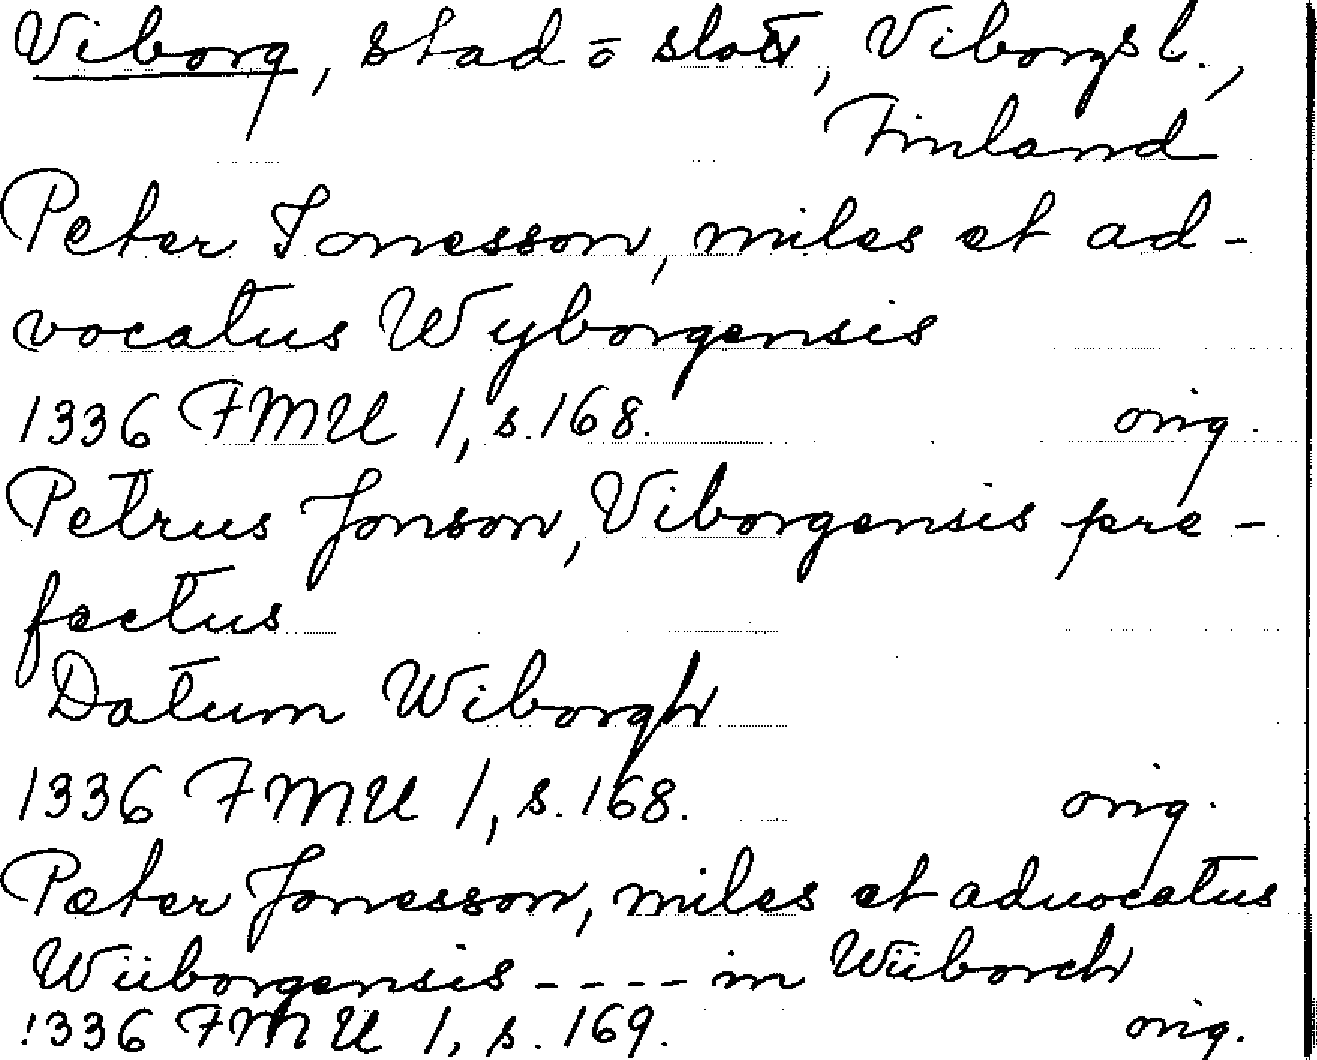 Viborg, stad o slott, Viborgs l.,
Finland
Peter Jonesson, miles et ad-
vocatus Wyborgensis
1336 FMU 1, s. 168. orig.
Petrus Jonson, Viborgensis pre-
fectus
Datum Wiborgh
1336 FMU 1, s. 168. orig.
Peter Jonesson, miles et aduocatus
Wiiborgensis - - - - in Wiiborch
1336 FMU 1, s. 169. orig.